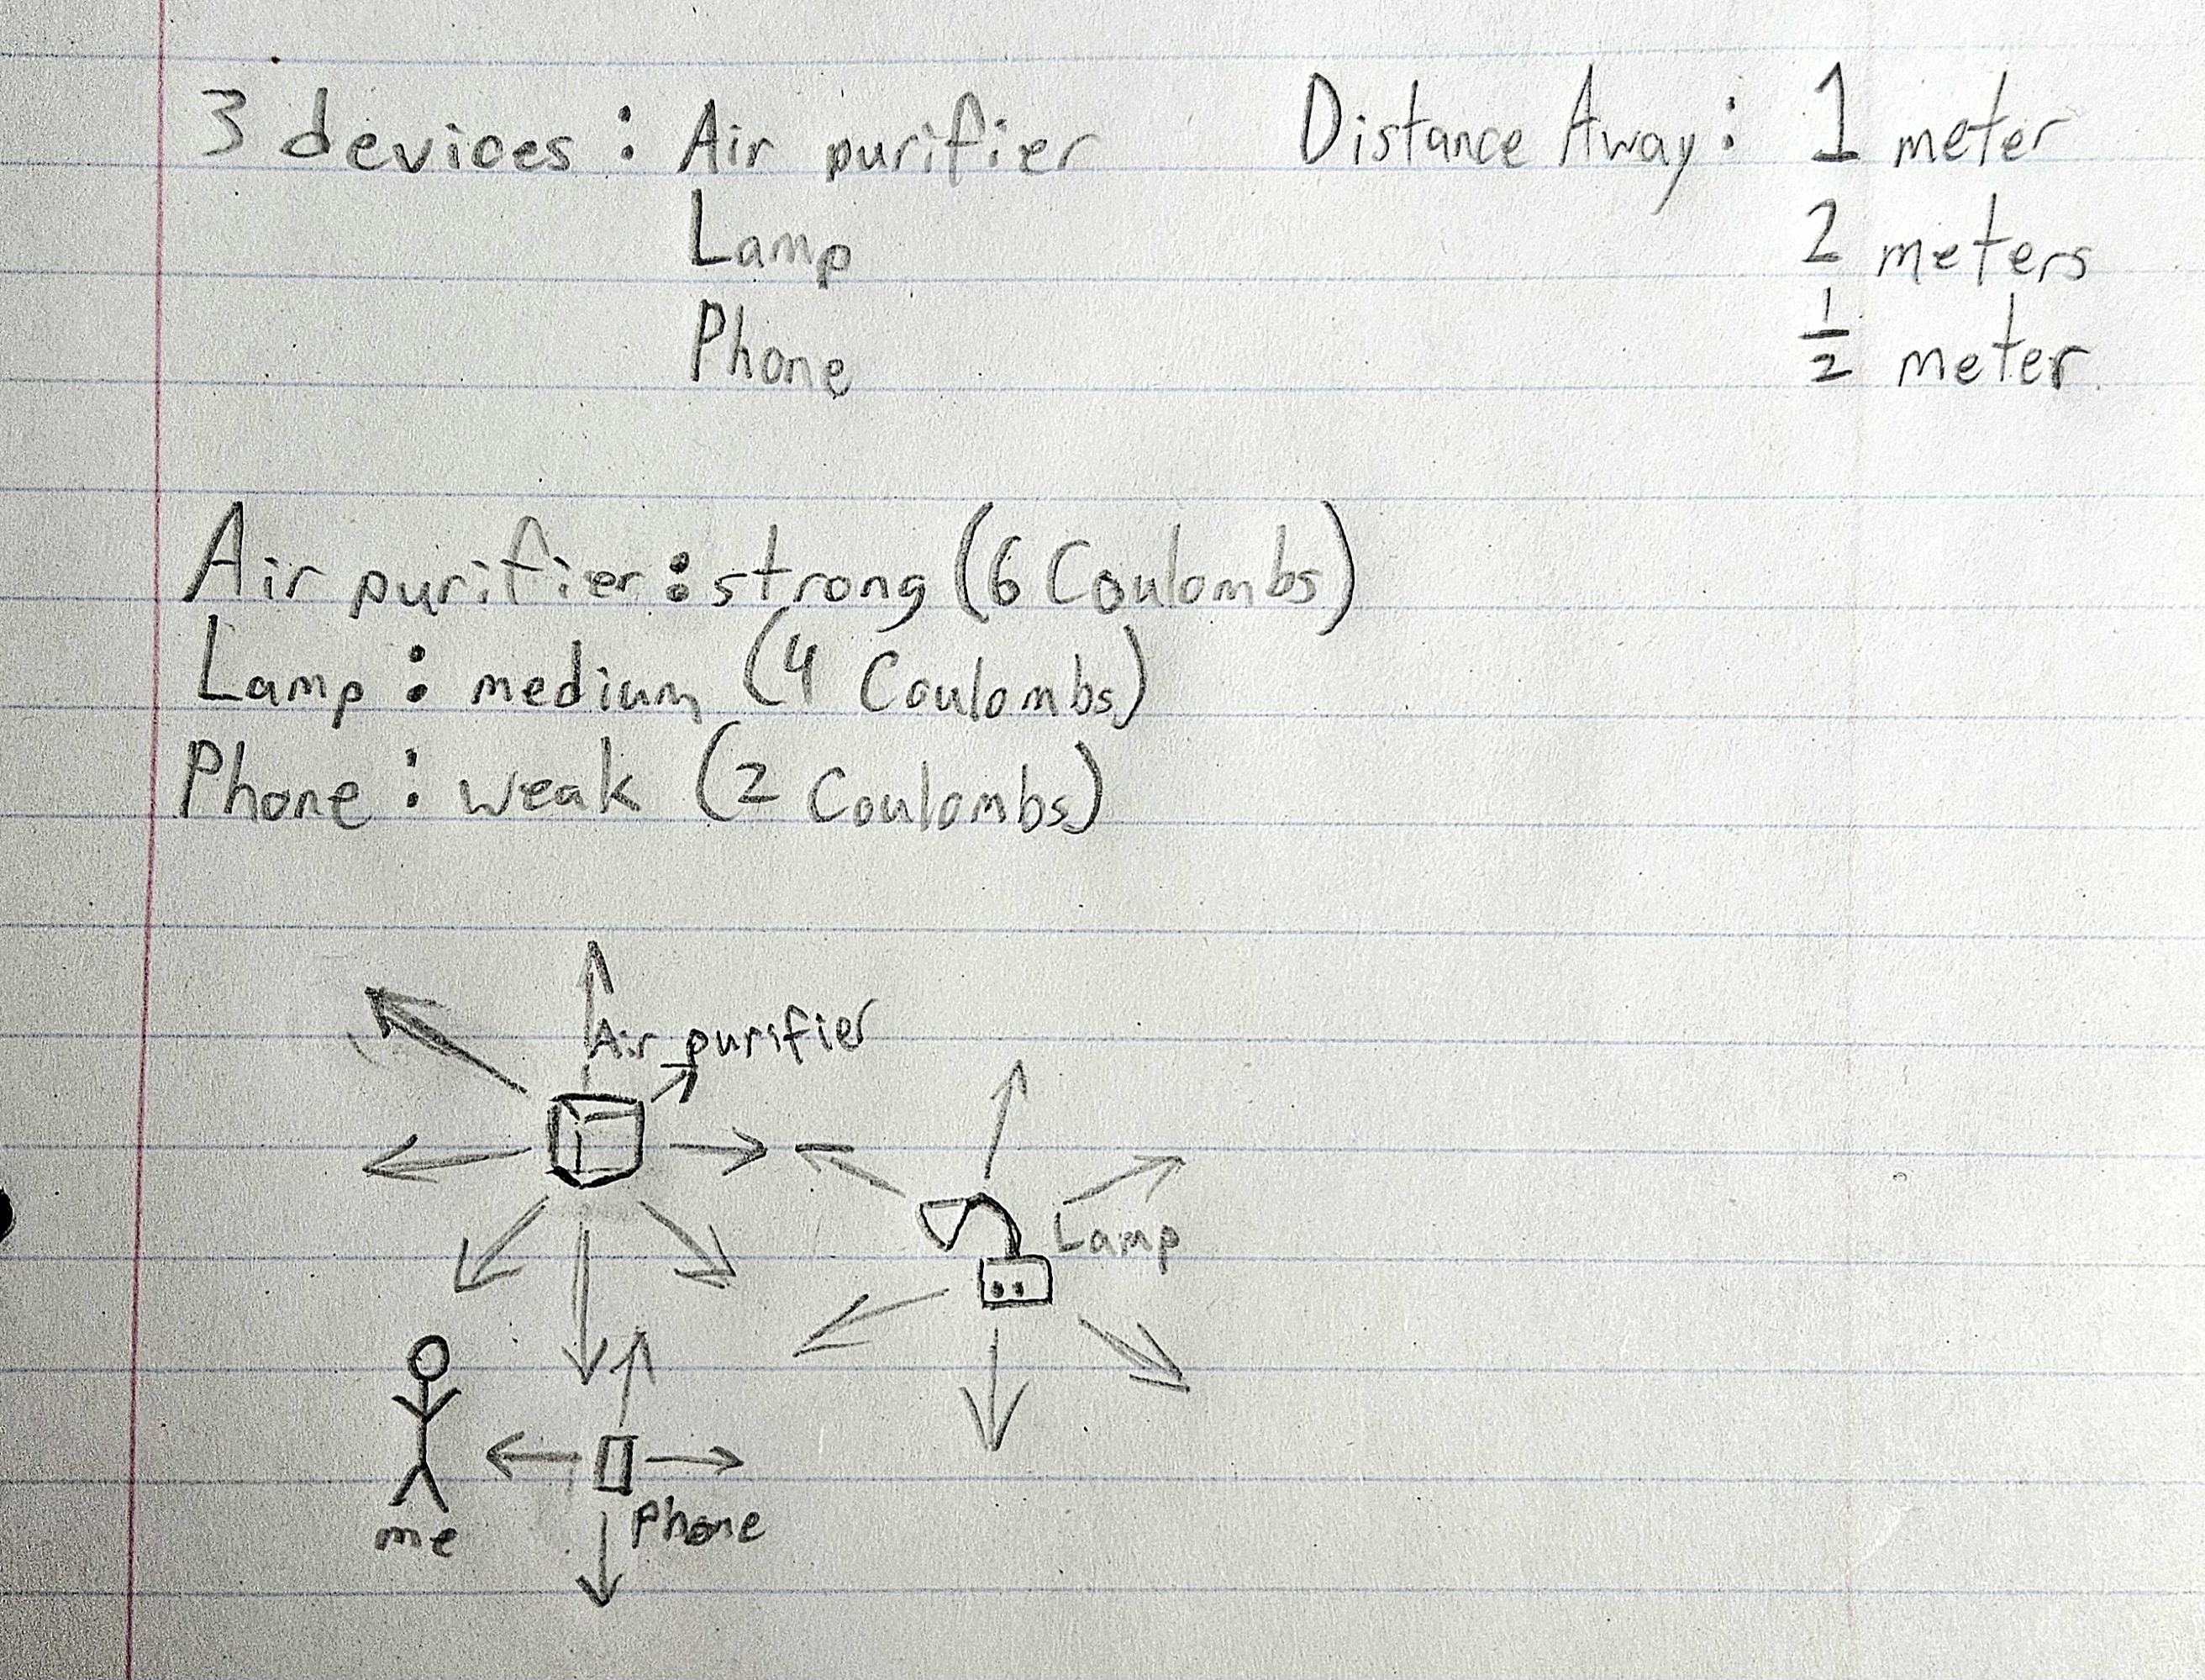 3 devices: Air purifier Distance Away: 1 meter
Lamp 2 meters
Phone 1/2 meter
Air purifier: strong (6 Coulombs)
Lamp: medium (4 Coulombs)
Phone: weak (2 Coulombs)
Air purifier
Lamp
Phone
me